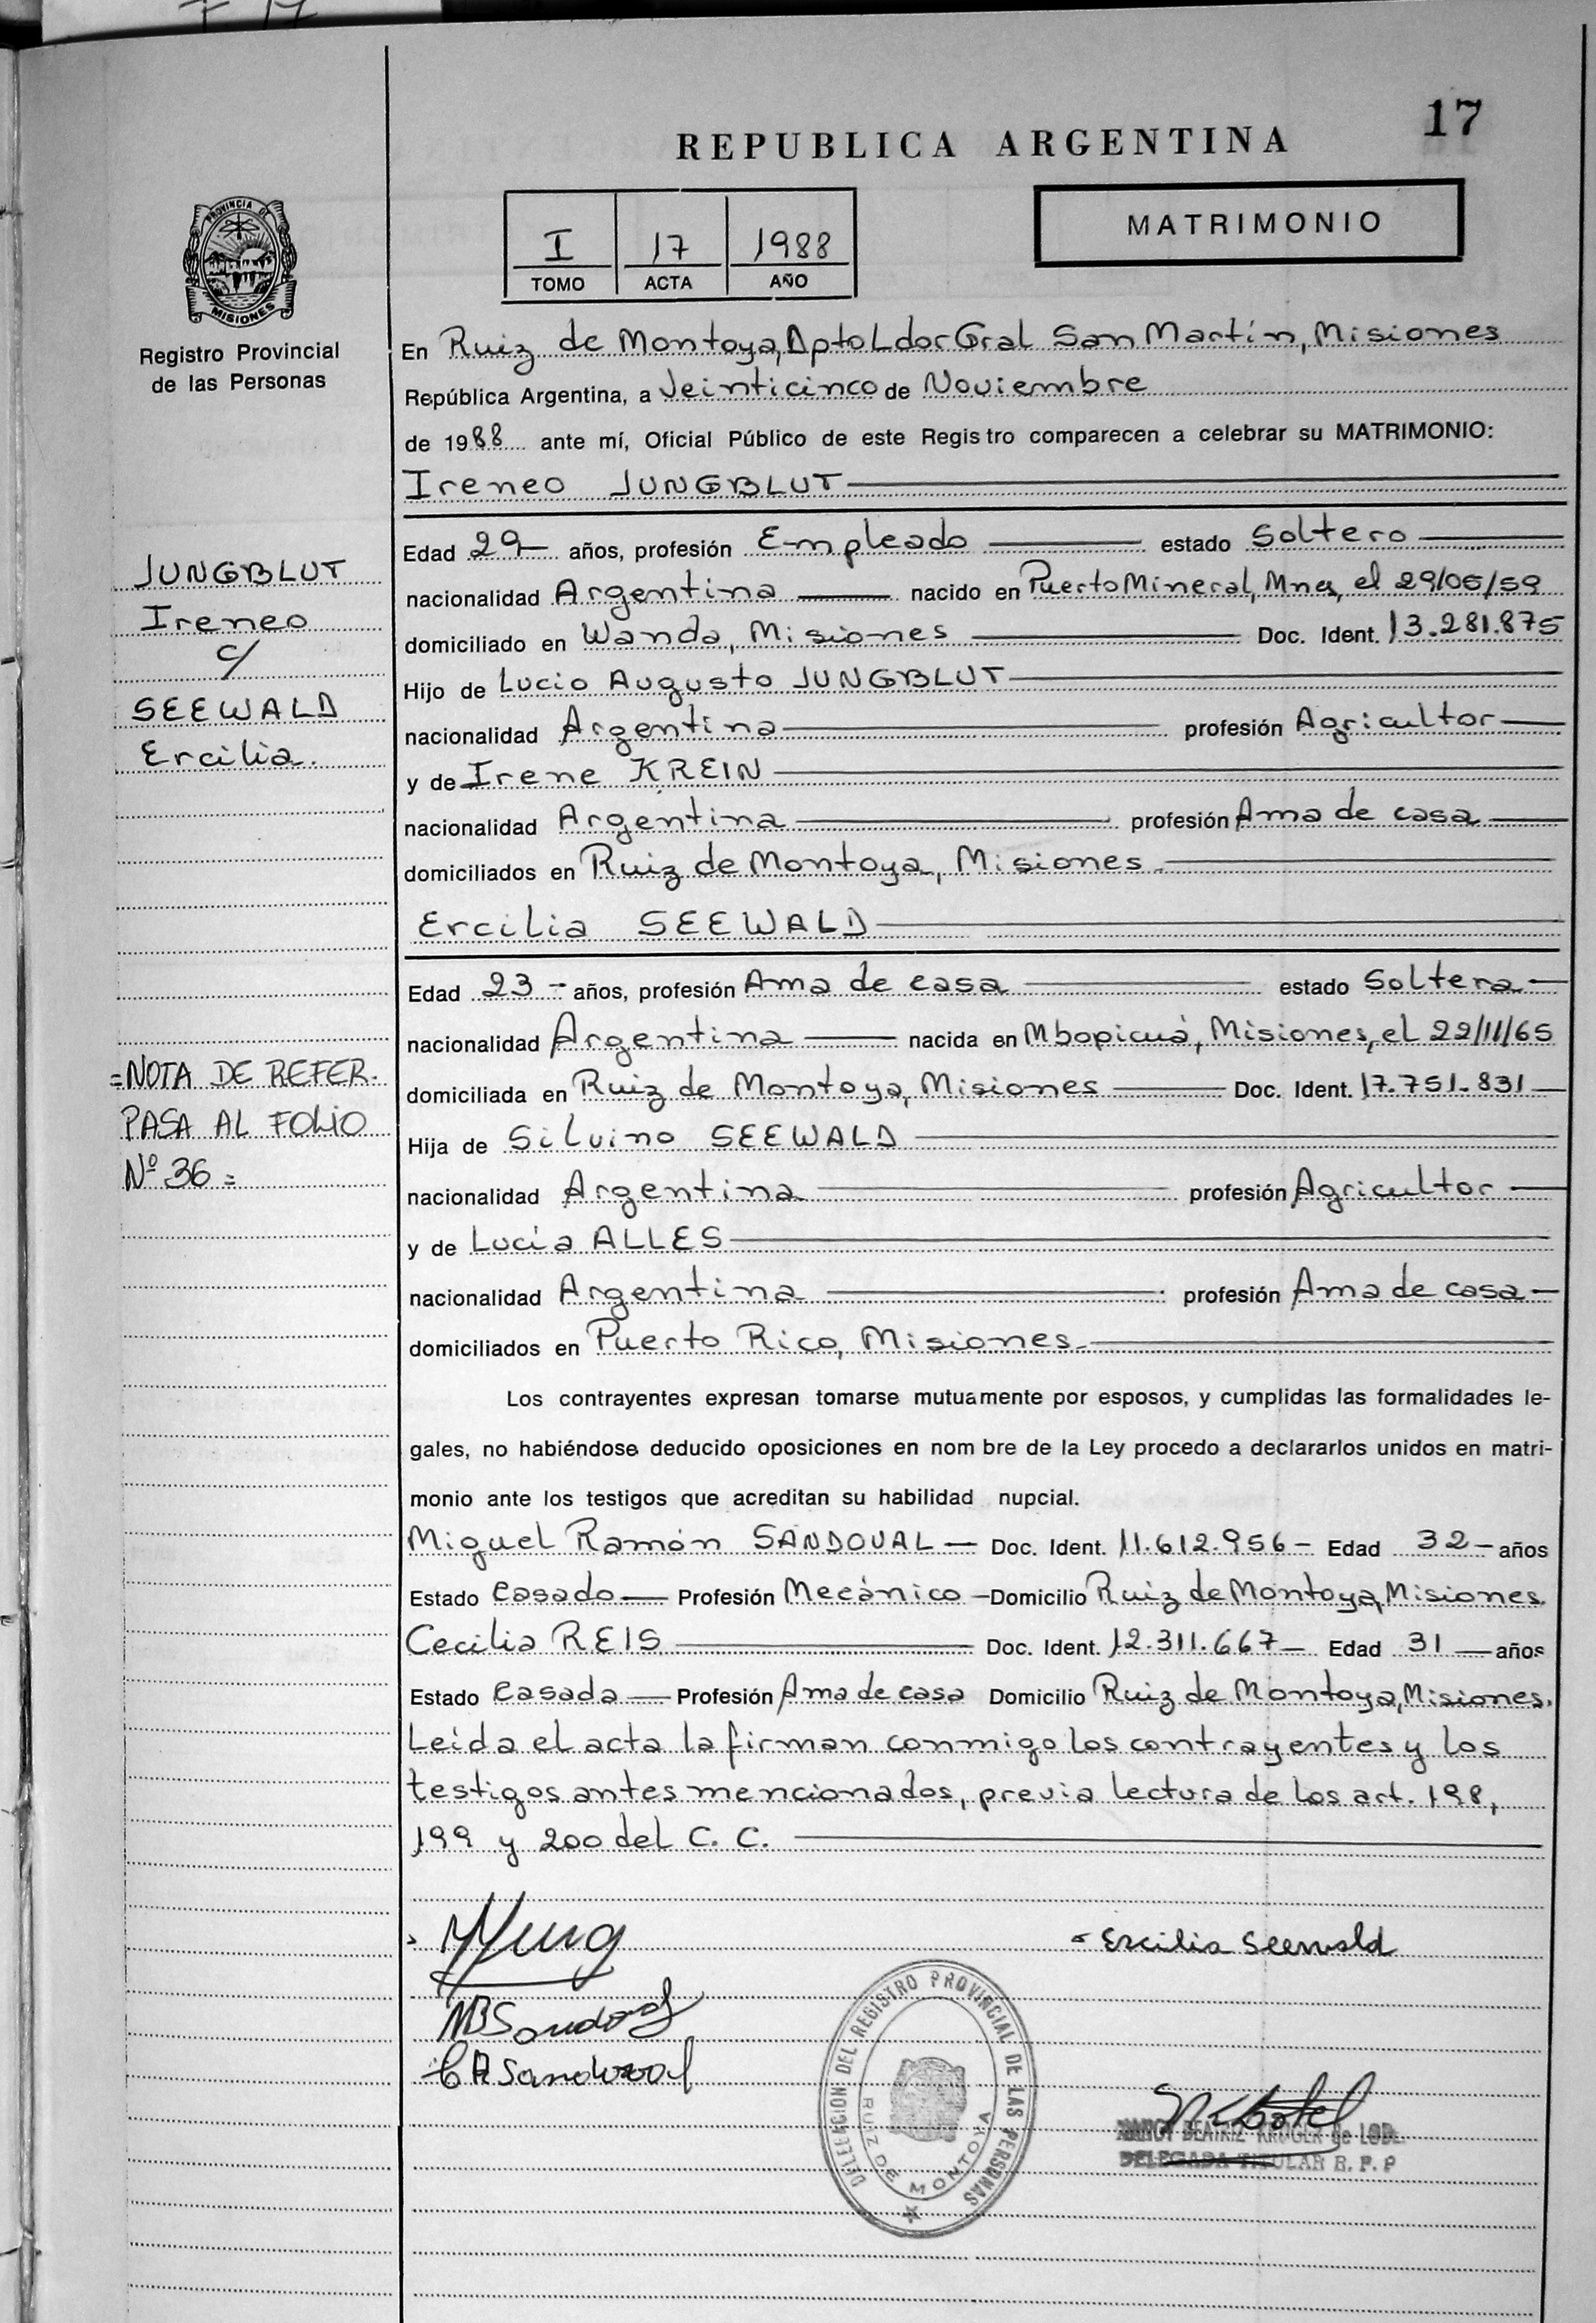 17
REPUBLICA ARGENTINA
MATRIMONIO
I 17 1988
TOMO ACTA AÑO
PROVINCIA DE
MISIONES
Registro Provincial
de las Personas
JUNGBLUT
Ireneo
c/
SEEWALD
Ercilia.
=NOTA DE REFER.
PASA AL FOLIO
Nº 36=
En Ruiz de Montoya, Dpto Ldor Gral San Martín, Misiones
República Argentina, a Veinticinco de Noviembre
de 1988 ante mí, Oficial Público de este Registro comparecen a celebrar su MATRIMONIO:
Ireneo JUNGBLUT
Edad 29 años, profesión Empleado estado Soltero
nacionalidad Argentina nacido en Puerto Mineral, Mnes, el 29/05/59
domiciliado en Wanda, Misiones Doc. Ident. 13.281.875
Hijo de Lucio Augusto JUNGBLUT
nacionalidad Argentina profesión Agricultor
y de Irene KREIN
nacionalidad Argentina profesión Ama de casa
domiciliados en Ruiz de Montoya, Misiones.
Ercilia SEEWALD
Edad 23 - años, profesión Ama de casa estado Soltera
nacionalidad Argentina nacida en Mbopicuá, Misiones, el 22/11/65
domiciliada en Ruiz de Montoya, Misiones Doc. Ident. 17.751.831
Hija de Silvino SEEWALD
nacionalidad Argentina profesión Agricultor
y de Lucía ALLES
nacionalidad Argentina profesión Ama de casa
domiciliados en Puerto Rico, Misiones.
Los contrayentes expresan tomarse mutuamente por esposos, y cumplidas las formalidades le-
gales, no habiéndose deducido oposiciones en nombre de la Ley procedo a declararlos unidos en matri-
monio ante los testigos que acreditan su habilidad nupcial.
Miguel Ramón SANDOVAL Doc. Ident. 11.612.956 - Edad 32 - años
Estado Casado Profesión Mecánico - Domicilio Ruiz de Montoya, Misiones.
Cecilia REIS Doc. Ident. 12.311.667 Edad 31 años
Estado Casada Profesión Ama de casa Domicilio Ruiz de Montoya, Misiones.
Leída el acta la firman conmigo los contrayentes y los
testigos antes mencionados, previa lectura de los art. 198,
199 y 200 del C. C.
Ercilia Seewald
Sandoval
Sandoval
DELEGACION DEL REGISTRO PROVINCIAL DE LAS PERSONAS
RUIZ DE MONTOYA
NANCY BEATRIZ KRUGER de LOD
DELEGADA TITULAR R. P. P